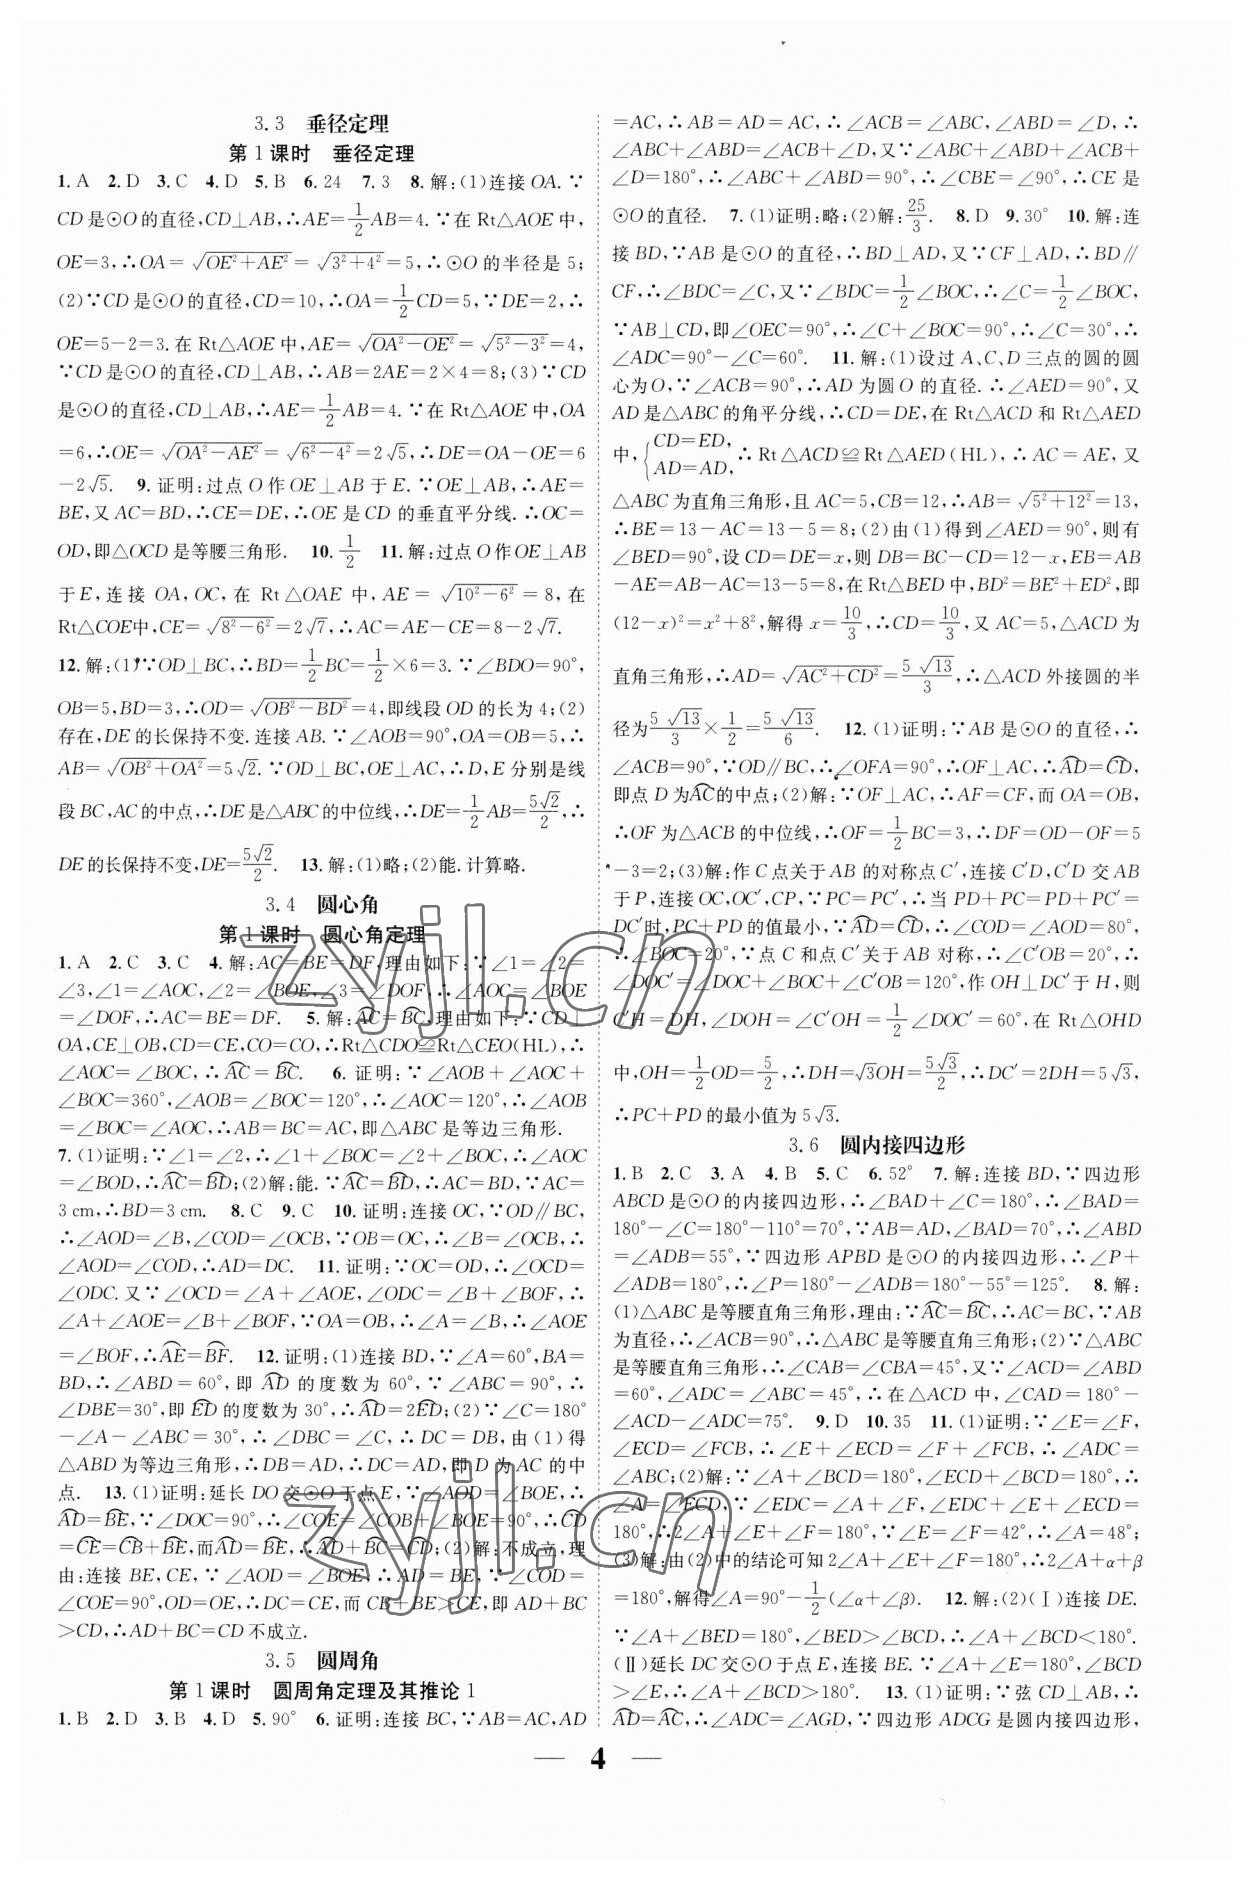 3.3 垂径定理
第1课时 垂径定理
1.A 2.D 3.C 4.D 5.B 6.24 7.3 8.解:(1)连接OA.∵
CD是⊙O的直径,CD⊥AB,∴AE=1/2AB=4.∵在Rt△AOE中,
OE=3,∴OA=√(OE²+AE²)=√(3²+4²)=5,∴⊙O的半径是5;
(2)∵CD是⊙O的直径,CD=10,∴OA=1/2CD=5,∵DE=2,∴
OE=5-2=3.在Rt△AOE中,AE=√(OA²-OE²)=√(5²-3²)=4,
∵CD是⊙O的直径,CD⊥AB,∴AB=2AE=2×4=8;(3)∵CD
是⊙O的直径,CD⊥AB,∴AE=1/2AB=4.∵在Rt△AOE中,OA
=6,∴OE=√(OA²-AE²)=√(6²-4²)=2√5,∴DE=OA-OE=6
-2√5. 9.证明:过点O作OE⊥AB于E.∵OE⊥AB,∴AE=
BE,又AC=BD,∴CE=DE,∴OE是CD的垂直平分线.∴OC=
OD,即△OCD是等腰三角形. 10.1/2 11.解:过点O作OE⊥AB
于E,连接OA,OC,在Rt△OAE中,AE=√(10²-6²)=8,在
Rt△COE中,CE=√(8²-6²)=2√7,∴AC=AE-CE=8-2√7.
12.解:(1)∵OD⊥BC,∴BD=1/2BC=1/2×6=3.∵∠BDO=90°,
OB=5,BD=3,∴OD=√(OB²-BD²)=4,即线段OD的长为4;(2)
存在,DE的长保持不变.连接AB.∵∠AOB=90°,OA=OB=5,∴
AB=√(OB²+OA²)=5√2.∵OD⊥BC,OE⊥AC,∴D,E分别是线
段BC,AC的中点,∴DE是△ABC的中位线,∴DE=1/2AB=5√2/2,∴
DE的长保持不变,DE=5√2/2. 13.解:(1)略;(2)能.计算略.
3.4 圆心角
第1课时 圆心角定理
1.A 2.C 3.C 4.解:AC=BE=DF,理由如下:∵∠1=∠2=
∠3,∠1=∠AOC,∠2=∠BOE,∠3=∠DOF,∴∠AOC=∠BOE
=∠DOF,∴AC=BE=DF. 5.解:⌒AC=⌒BC,理由如下:∵CD⊥
OA,CE⊥OB,CD=CE,CO=CO,∴Rt△CDO≌Rt△CEO(HL),∴
∠AOC=∠BOC,∴⌒AC=⌒BC. 6.证明:∵∠AOB+∠AOC+
∠BOC=360°,∠AOB=∠BOC=120°,∴∠AOC=120°,∴∠AOB
=∠BOC=∠AOC,∴AB=BC=AC,即△ABC是等边三角形.
7.(1)证明:∵∠1=∠2,∴∠1+∠BOC=∠2+∠BOC,∴∠AOC
=∠BOD,∴⌒AC=⌒BD;(2)解:能.∵⌒AC=⌒BD,∴AC=BD,∵AC=
3 cm,∴BD=3 cm. 8.C 9.C 10.证明:连接OC,∵OD∥BC,
∴∠AOD=∠B,∠COD=∠OCB,∵OB=OC,∴∠B=∠OCB,∴
∠AOD=∠COD,∴AD=DC. 11.证明:∵OC=OD,∴∠OCD=
∠ODC.又∵∠OCD=∠A+∠AOE,∠ODC=∠B+∠BOF,∴
∠A+∠AOE=∠B+∠BOF,∵OA=OB,∴∠A=∠B,∴∠AOE
=∠BOF,∴⌒AE=⌒BF. 12.证明:(1)连接BD,∵∠A=60°,BA=
BD,∴∠ABD=60°,即⌒AD的度数为60°,∵∠ABC=90°,∴
∠DBE=30°,即⌒ED的度数为30°,∴⌒AD=2⌒ED;(2)∵∠C=180°
-∠A-∠ABC=30°,∴∠DBC=∠C,∴DC=DB,由(1)得
△ABD为等边三角形,∴DB=AD,∴DC=AD,即D为AC的中
点. 13.(1)证明:延长DO交⊙O于点E,∵∠AOD=∠BOE,∴
⌒AD=⌒BE,∵∠COD=90°,∴∠COE=∠COB+∠BOE=90°,∴⌒CD
=⌒CE=⌒CB+⌒BE,而⌒AD=⌒BE,∴⌒AD+⌒BC=⌒CD;(2)解:不成立,理
由:连接BE,CE,∵∠AOD=∠BOE,∴AD=BE,∵∠COD=
∠COE=90°,OD=OE,∴DC=CE,而CB+BE>CE,即AD+BC
>CD,∴AD+BC=CD不成立.
3.5 圆周角
第1课时 圆周角定理及其推论1
1.B 2.D 3.B 4.D 5.90° 6.证明:连接BC,∵AB=AC,AD
=AC,∴AB=AD=AC,∴∠ACB=∠ABC,∠ABD=∠D,∴
∠ABC+∠ABD=∠ACB+∠D,又∵∠ABC+∠ABD+∠ACB+
∠D=180°,∴∠ABC+∠ABD=90°,∴∠CBE=90°,∴CE是
⊙O的直径. 7.(1)证明:略;(2)解:25/3. 8.D 9.30° 10.解:连
接BD,∵AB是⊙O的直径,∴BD⊥AD,又∵CF⊥AD,∴BD∥
CF,∴∠BDC=∠C,又∵∠BDC=1/2∠BOC,∴∠C=1/2∠BOC,
∵AB⊥CD,即∠OEC=90°,∴∠C+∠BOC=90°,∴∠C=30°,∴
∠ADC=90°-∠C=60°. 11.解:(1)设过A、C、D三点的圆的圆
心为O,∵∠ACB=90°,∴AD为圆O的直径.∴∠AED=90°,又
AD是△ABC的角平分线,∴CD=DE,在Rt△ACD和Rt△AED
中,{CD=ED,AD=AD,∴Rt△ACD≌Rt△AED(HL),∴AC=AE,又
△ABC为直角三角形,且AC=5,CB=12,∴AB=√(5²+12²)=13,
∴BE=13-AC=13-5=8;(2)由(1)得到∠AED=90°,则有
∠BED=90°,设CD=DE=x,则DB=BC-CD=12-x,EB=AB
-AE=AB-AC=13-5=8,在Rt△BED中,BD²=BE²+ED²,即
(12-x)²=x²+8²,解得x=10/3,∴CD=10/3,又AC=5,△ACD为
直角三角形,∴AD=√(AC²+CD²)=5√13/3,∴△ACD外接圆的半
径为5√13/3×1/2=5√13/6. 12.(1)证明:∵AB是⊙O的直径,∴
∠ACB=90°,∵OD∥BC,∴∠OFA=90°,∴OF⊥AC,∴⌒AD=⌒CD,
即点D为⌒AC的中点;(2)解:∵OF⊥AC,∴AF=CF,而OA=OB,
∴OF为△ACB的中位线,∴OF=1/2BC=3,∴DF=OD-OF=5
-3=2;(3)解:作C点关于AB的对称点C′,连接C′D,C′D交AB
于P,连接OC,OC′,CP,∵PC=PC′,∴当PD+PC=PD+PC′=
DC′时,PC+PD的值最小.∵⌒AD=⌒CD,∴∠COD=∠AOD=80°,
∴∠BOC=20°,∵点C和点C′关于AB对称,∴∠C′OB=20°,∴
∠DOC′=∠DOC+∠BOC+∠C′OB=120°,作OH⊥DC′于H,则
C′H=DH,∠DOH=∠C′OH=1/2∠DOC′=60°,在Rt△OHD
中,OH=1/2OD=5/2,∴DH=√3OH=5√3/2,∴DC′=2DH=5√3,
∴PC+PD的最小值为5√3.
3.6 圆内接四边形
1.B 2.C 3.A 4.B 5.C 6.52° 7.解:连接BD,∵四边形
ABCD是⊙O的内接四边形,∴∠BAD+∠C=180°,∴∠BAD=
180°-∠C=180°-110°=70°,∵AB=AD,∠BAD=70°,∴∠ABD
=∠ADB=55°,∵四边形APBD是⊙O的内接四边形,∴∠P+
∠ADB=180°,∴∠P=180°-∠ADB=180°-55°=125°. 8.解:
(1)△ABC是等腰直角三角形,理由:∵⌒AC=⌒BC,∴AC=BC,∵AB
为直径,∴∠ACB=90°,∴△ABC是等腰直角三角形;(2)∵△ABC
是等腰直角三角形,∴∠CAB=∠CBA=45°,又∵∠ACD=∠ABD
=60°,∠ADC=∠ABC=45°,∴在△ACD中,∠CAD=180°-
∠ACD-∠ADC=75°. 9.D 10.35 11.(1)证明:∵∠E=∠F,
∠ECD=∠FCB,∴∠E+∠ECD=∠F+∠FCB,∴∠ADC=
∠ABC;(2)解:∵∠A+∠BCD=180°,∠ECD+∠BCD=180°,∴
∠A=∠ECD,∵∠EDC=∠A+∠F,∠EDC+∠E+∠ECD=
180°,∴2∠A+∠E+∠F=180°,∵∠E=∠F=42°,∴∠A=48°;
(3)解:由(2)中的结论可知2∠A+∠E+∠F=180°,∴2∠A+α+β
=180°,解得∠A=90°-1/2(∠α+∠β). 12.解:(2)(Ⅰ)连接DE.
∵∠A+∠BED=180°,∠BED>∠BCD,∴∠A+∠BCD<180°.
(Ⅱ)延长DC交⊙O于点E,连接BE.∵∠A+∠E=180°,∠BCD
>∠E,∴∠A+∠BCD>180°. 13.(1)证明:∵弦CD⊥AB,∴
⌒AD=⌒AC,∴∠ADC=∠AGD,∵四边形ADCG是圆内接四边形,
4
zyjl.cn
zyjl.cn